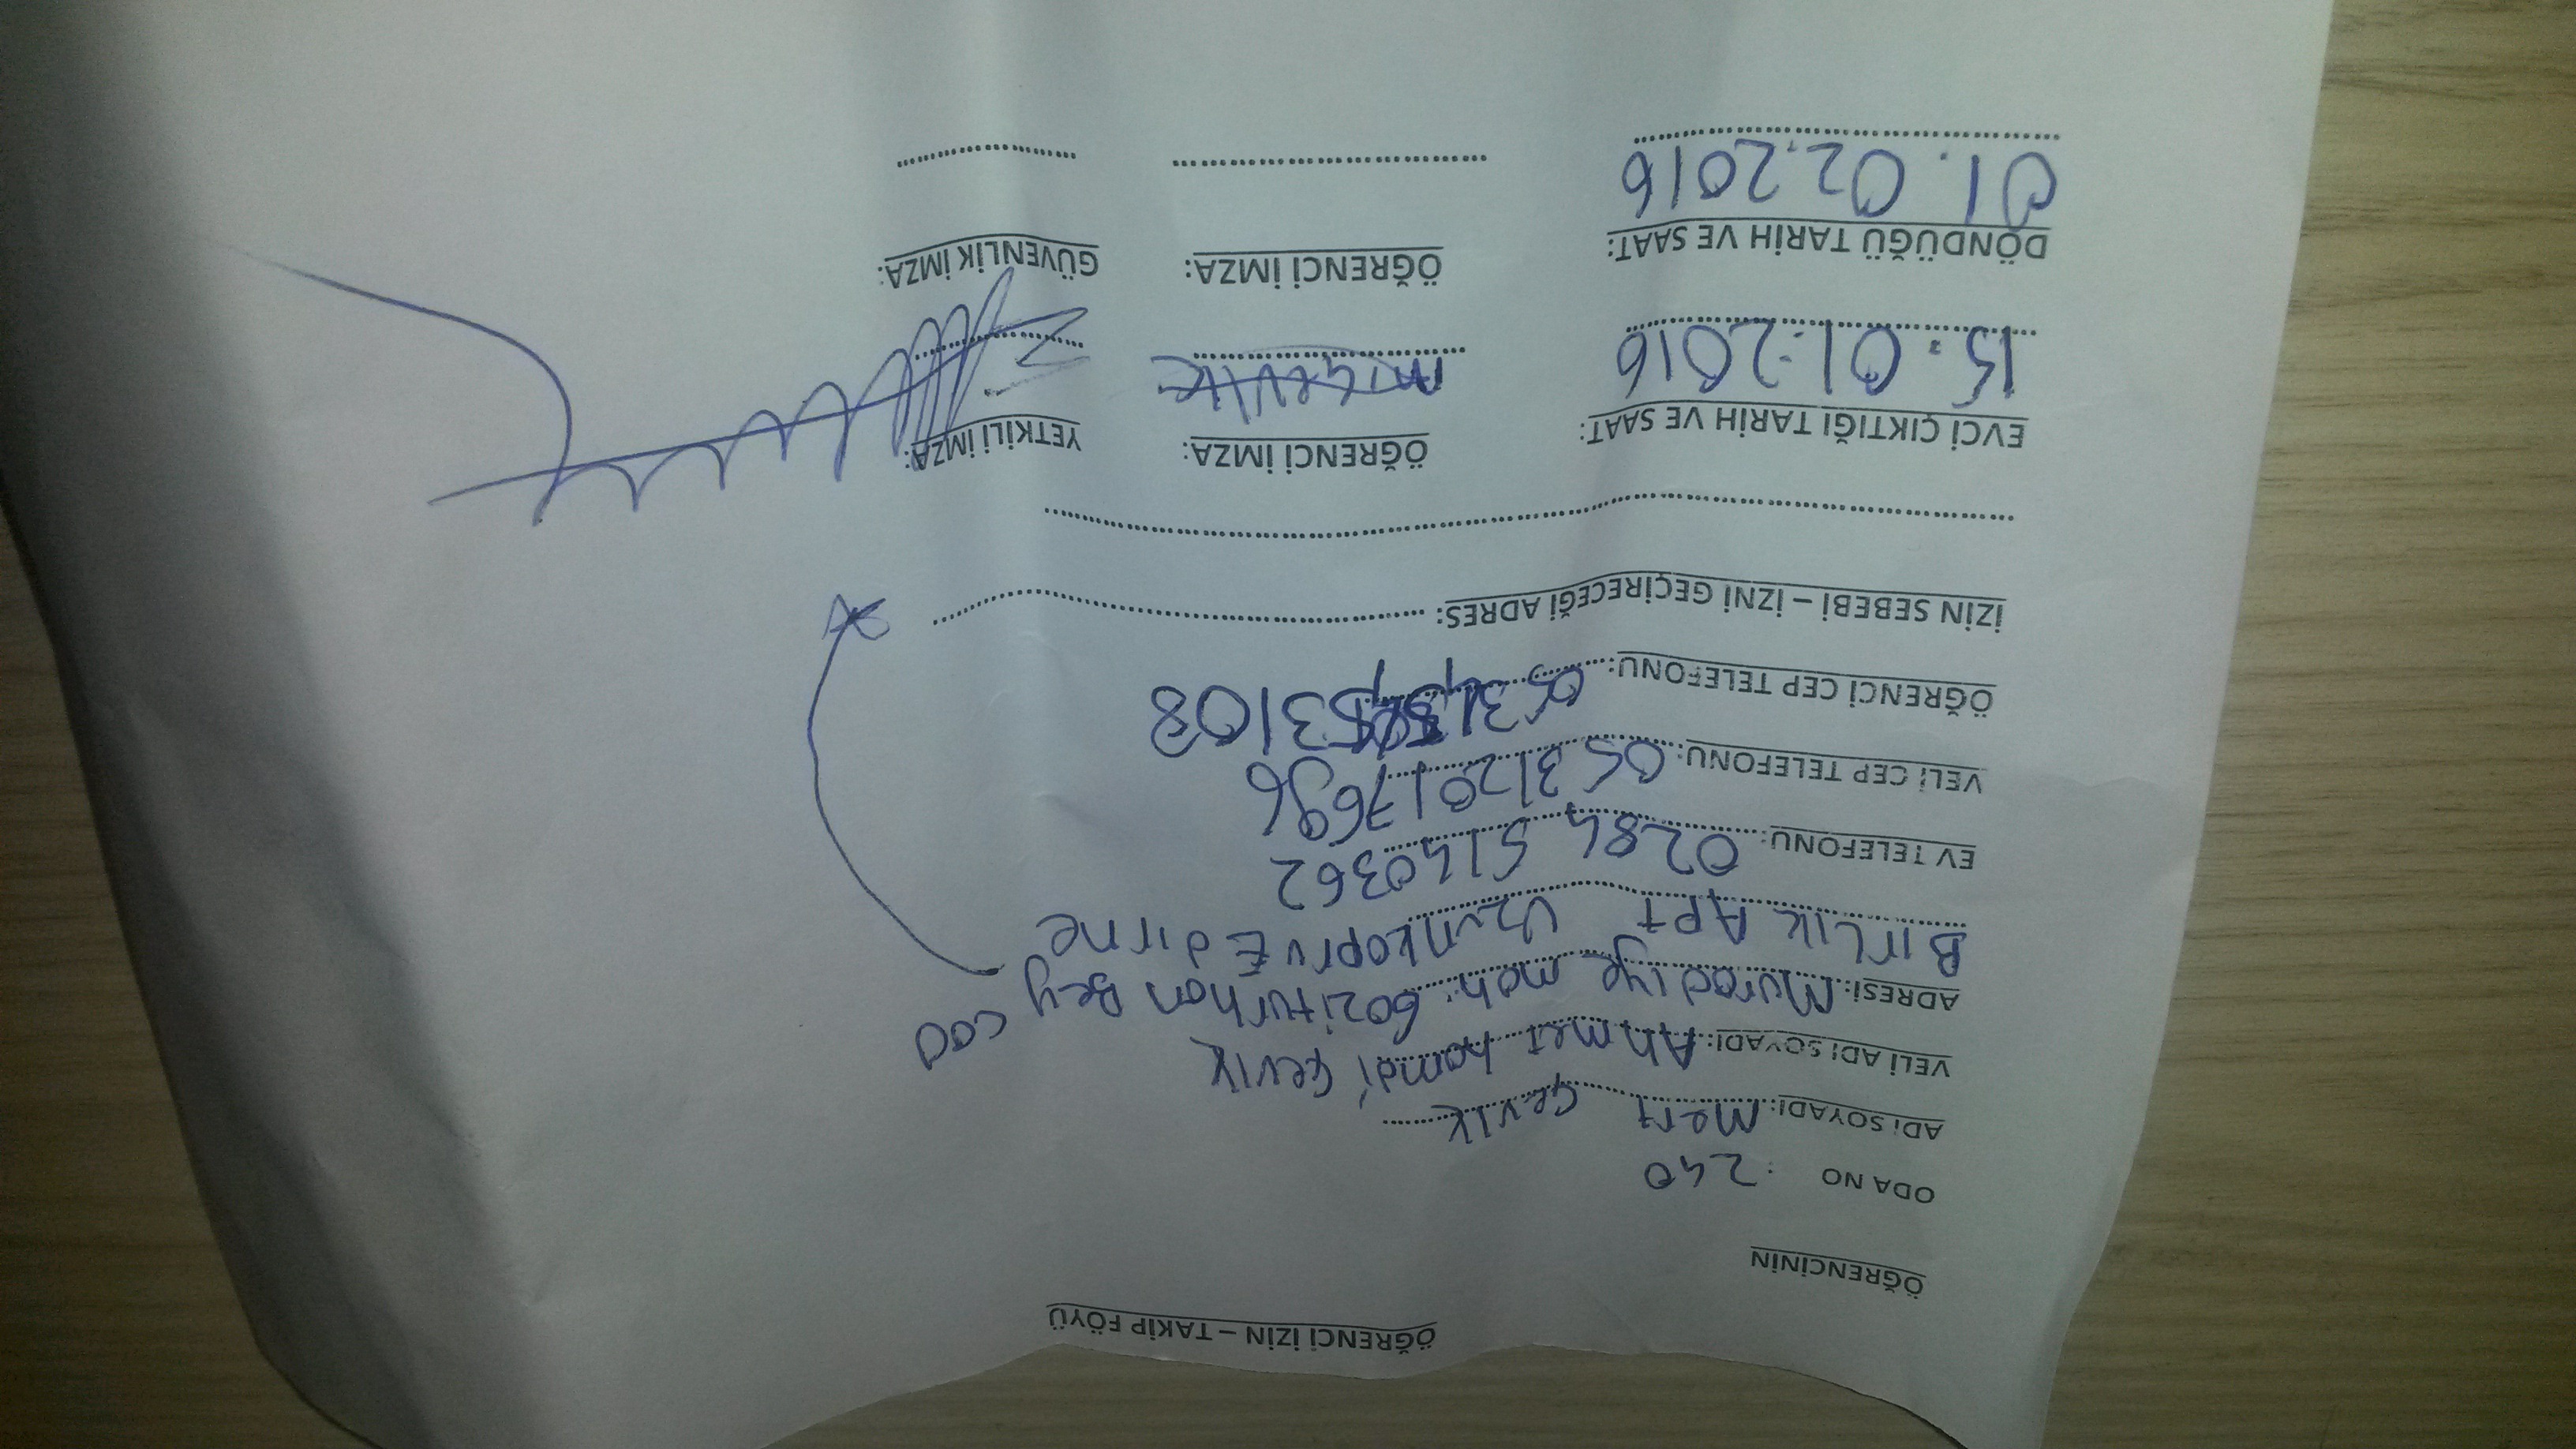 ÖĞRENCİ İZİN – TAKİP FÖYÜ
ÖĞRENCİNİN
ODA NO : 240
ADI SOYADI: Mert Çevik
VELİ ADI SOYADI: Ahmet hamdi Çevik
ADRESİ: Muradiye mah. Gaziturhan Bey cad
Birlik Apt Uzunkopru Edirne
EV TELEFONU: 0284 5140362
VELİ CEP TELEFONU: 05312017696
ÖĞRENCİ CEP TELEFONU: 53108
İZİN SEBEBİ – İZNİ GEÇİRECEĞİ ADRES:
EVCİ ÇIKTIĞI TARİH VE SAAT: ÖĞRENCİ İMZA: YETKİLİ İMZA:
15.01.2016 m.çevik
DÖNDÜĞÜ TARİH VE SAAT: ÖĞRENCİ İMZA: GÜVENLİK İMZA:
01.02.2016